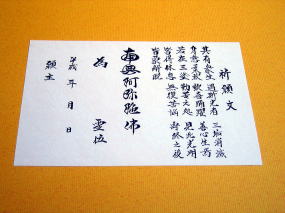 祈願文
其有衆生 遇斯光者 三垢消滅
身意柔軟 歓喜踊躍 善心生焉
若在三塗 勤苦之処 見此光明
皆得休息 無復苦悩 寿終之後
皆蒙解脱
南無阿弥陀佛
為 霊位
平成 年 月 日
願主